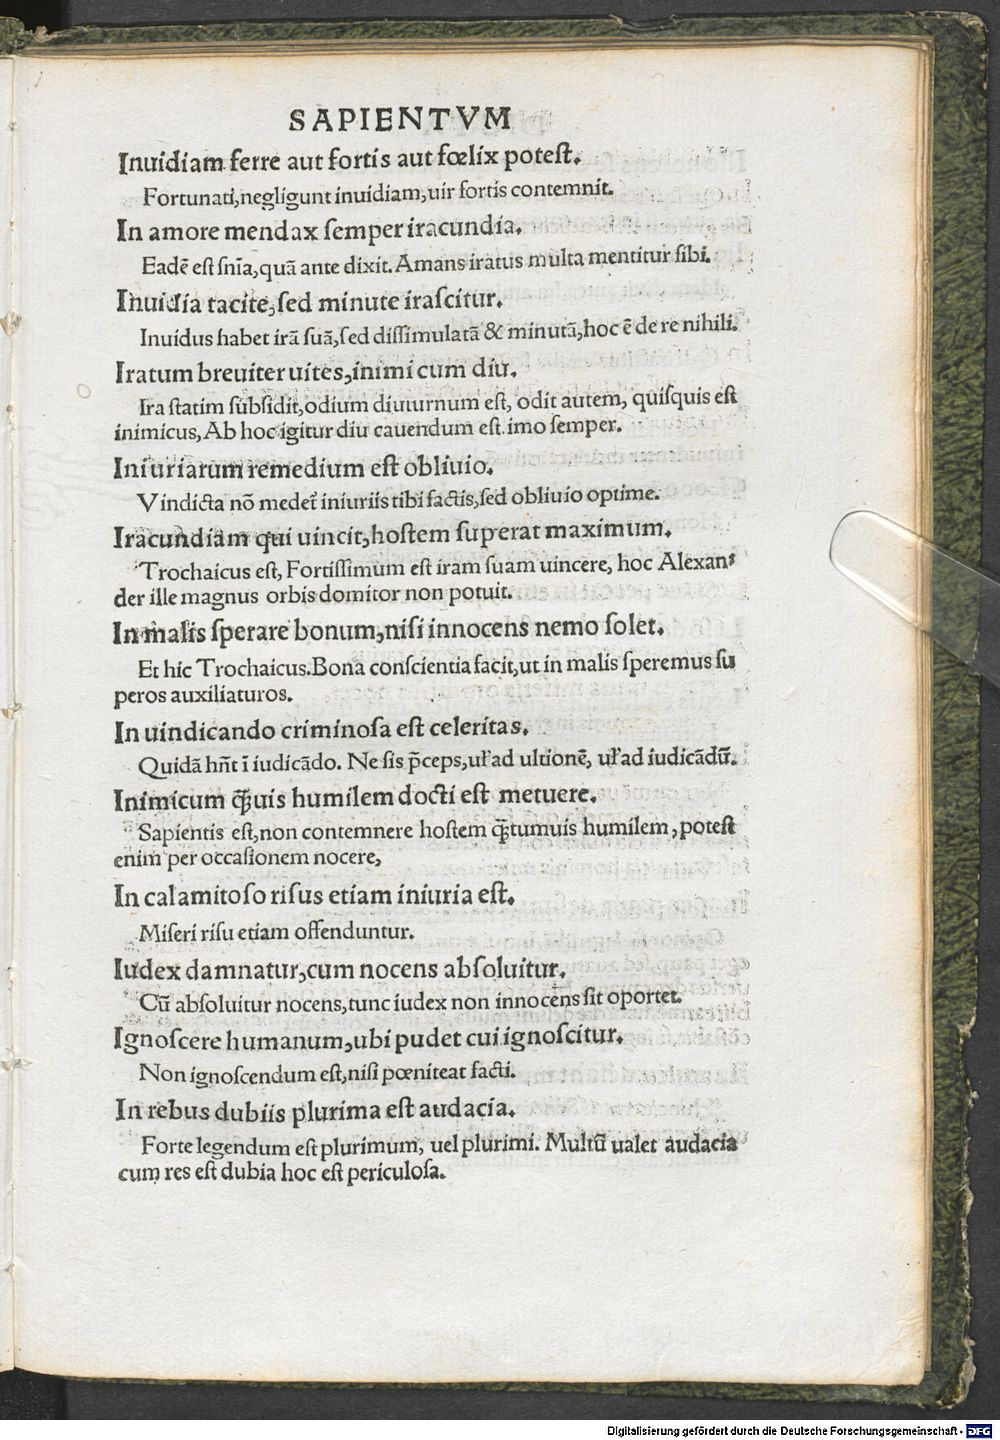 SAPIENTVM
Inuidiam ferre aut fortis aut fœlix poteſt.
Fortunati,negligunt inuidiam,uir fortis contemnit.
In amore mendax ſemper iracundia.
Eadē eſt ſnīa,quā ante dixit. Amans iratus multa mentitur ſibi.
Inuidia tacite,ſed minute iraſcitur.
Inuidus habet irā ſuā,ſed diſſimulatā & minutā,hoc ē de re nihili.
Iratum breuiter uites,inimicum diu.
Ira ſtatim ſubſidit,odium diuturnum eſt, odit autem, quiſquis eſt
inimicus, Ab hoc igitur diu cauendum eſt imo ſemper.
Iniuriarum remedium eſt obliuio.
Vindicta nō medet᷑ iniuriis tibi factis,ſed obliuio optime.
Iracundiam qui uincit,hoſtem ſuperat maximum.
Trochaicus eſt, Fortiſſimum eſt iram ſuam uincere, hoc Alexan⸗
der ille magnus orbis domitor non potuit.
In malis ſperare bonum,niſi innocens nemo ſolet.
Et hic Trochaicus.Bona conſcientia facit,ut in malis ſperemus ſu
peros auxiliaturos.
In uindicando criminoſa eſt celeritas.
Quidā hn̄t ī iudicādo. Ne ſis p̄ceps,uł ad ultionē, uł ad iudicādū.
Inimicum q̄uis humilem docti eſt metuere.
Sapientis eſt,non contemnere hoſtem q̄tumuis humilem,poteſt
enim per occaſionem nocere,
In calamitoſo riſus etiam iniuria eſt.
Miſeri riſu etiam offenduntur.
Iudex damnatur,cum nocens abſoluitur.
Cū abſoluitur nocens,tunc iudex non innocens ſit oportet.
Ignoſcere humanum,ubi pudet cui ignoſcitur.
Non ignoſcendum eſt,niſi pœniteat facti.
In rebus dubiis plurima eſt audacia.
Forte legendum eſt plurimum, uel plurimi. Multū ualet audacia
cum res eſt dubia hoc eſt periculoſa.
Digitalisierung gefördert durch die Deutsche Forschungsgemeinschaft - DFG